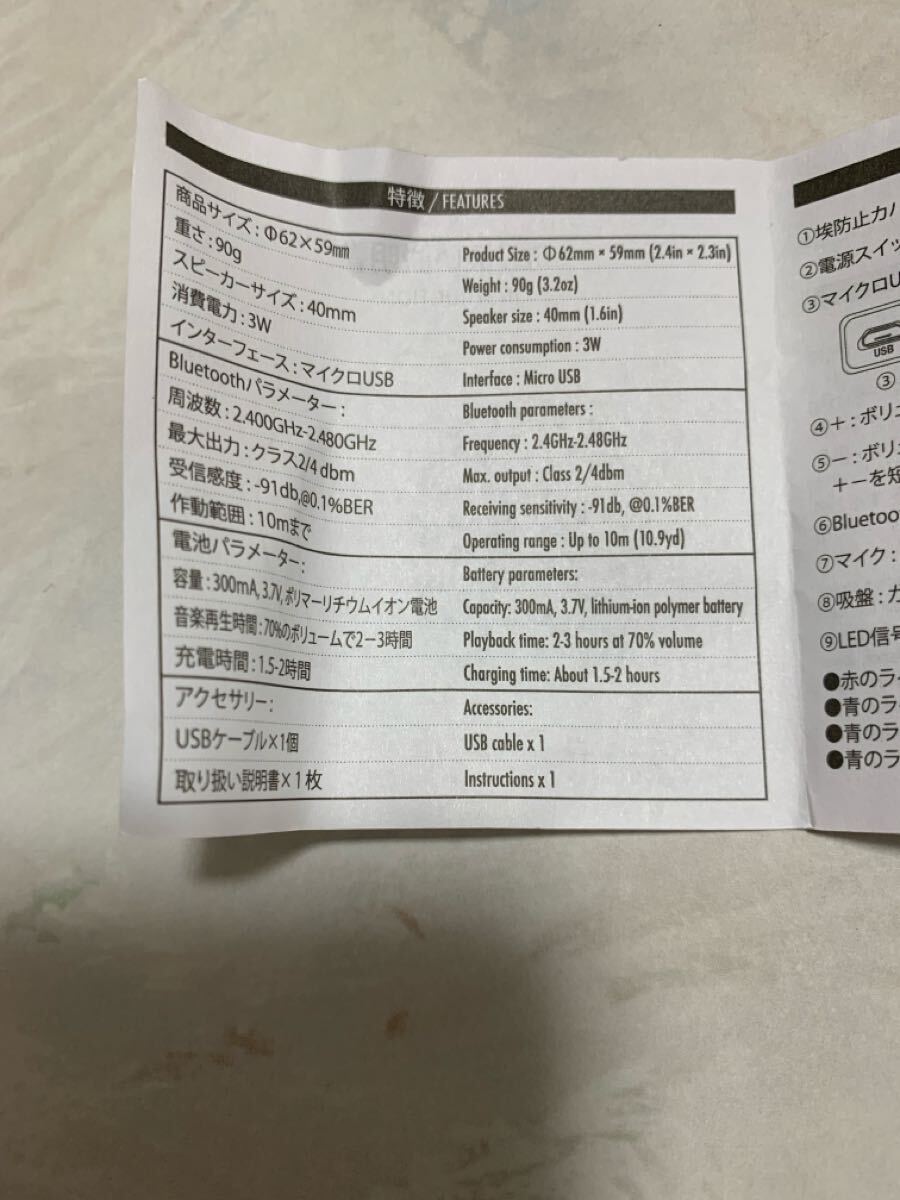 特徴 / FEATURES
商品サイズ : Φ62×59mm
Product Size : Φ62mm × 59mm (2.4in × 2.3in)
重さ : 90g
Weight : 90g (3.2oz)
スピーカーサイズ : 40mm
Speaker size : 40mm (1.6in)
消費電力 : 3W
Power consumption : 3W
インターフェース : マイクロUSB
Interface : Micro USB
Bluetoothパラメーター :
Bluetooth parameters :
周波数 : 2.400GHz-2.480GHz
Frequency : 2.4GHz-2.48GHz
最大出力 : クラス2/4 dbm
Max. output : Class 2/4dbm
受信感度 : -91db,@0.1%BER
Receiving sensitivity : -91db, @0.1%BER
作動範囲 : 10mまで
Operating range : Up to 10m (10.9yd)
電池パラメーター:
Battery parameters:
容量 : 300mA, 3.7V, ポリマーリチウムイオン電池
Capacity: 300mA, 3.7V, lithium-ion polymer battery
音楽再生時間 : 70%のボリュームで2ー3時間
Playback time: 2-3 hours at 70% volume
充電時間 : 1.5-2時間
Charging time: About 1.5-2 hours
アクセサリー:
Accessories:
USBケーブル×1個
USB cable x 1
取り扱い説明書×1枚
Instructions x 1
①埃防止カバ
②電源スイッ
③マイクロU
USB
③
④＋ : ボリュ
⑤ー : ボリュ
＋ーを短
⑥Bluetoo
⑦マイク :
⑧吸盤 : ガ
⑨LED信号
●赤のライ
●青のラ
●青のラ
●青のラ